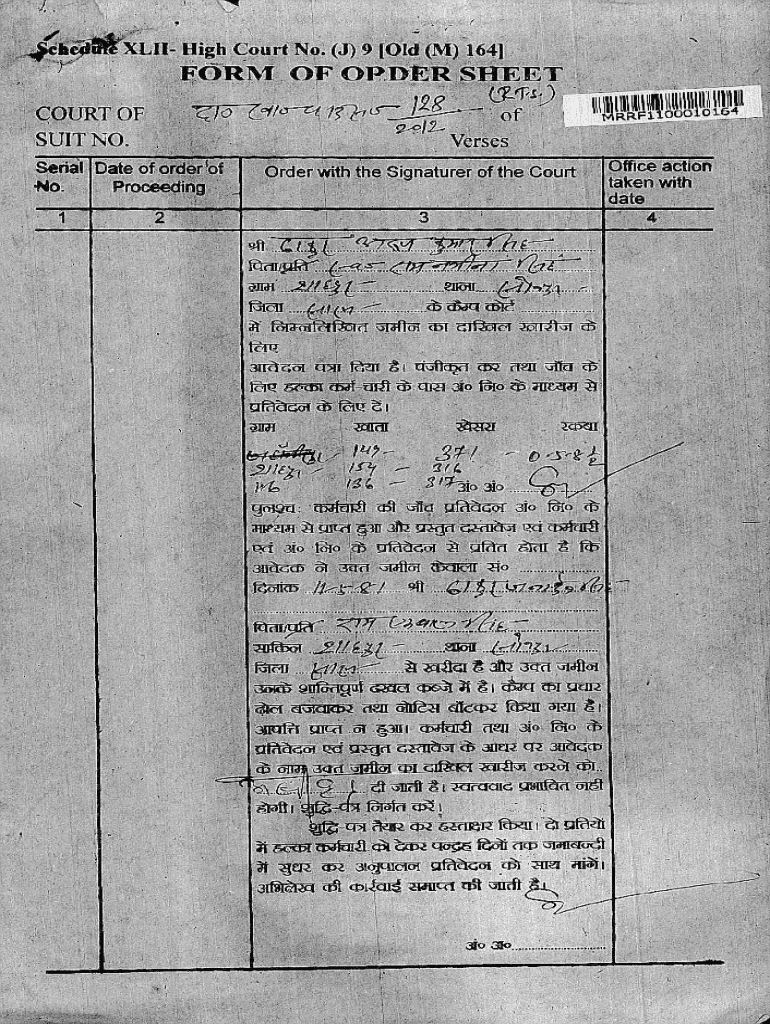 Schedule XLII- High Court No. (J) 9 [Old (M) 164]
FORM OF OPDER SHEET
(R.T.S.)
MRRF1100010164
COURT OF 128/2012 of
SUIT NO. Verses
Serial No. Date of order of Proceeding Order with the Signaturer of the Court Office action taken with date
1 2 3 4
श्री ठाकुर कुमार सिंह
पिता/प्रति स्व० राम सिंह
ग्राम थाना
जिला के कैम्प कोर्ट
मे निम्नलिखित जमीन का दाखिल खारीज के
लिए
आवेदन पत्रा दिया है। पंजीकृत कर तथा जाँच के
लिए हल्का कर्म-चारी के पास अं० नि० के माध्यम से
प्रतिवेदन के लिए दें।
ग्राम खाता खेसरा रकबा
149 - 371 - 0-5-8½
154 - 316
136 - 317 अं० अं०
पुनश्चः कर्मचारी की जाँच प्रतिवेदन अं० नि० के
माध्यम से प्राप्त हुआ और प्रस्तुत दस्तावेज एवं कर्मचारी
एवं अं० नि० के प्रतिवेदन से प्रतित होता है कि
आवेदक ने उक्त जमीन केवाला सं०
दिनांक 11-5-81 श्री ठाकुर सिंह
पिता/प्रति राम सिंह
साकिन थाना
जिला से खरीदा है और उक्त जमीन
उनके शान्तिपूर्ण दखल कब्जे में है। कैम्प का प्रचार
ढोल बजवाकर तथा नोटिस बाँटकर किया गया है।
आपत्ति प्राप्त न हुआ। कर्मचारी तथा अं० नि० के
प्रतिवेदन एवं प्रस्तुत दस्तावेज के आधर पर आवेदक
के नाम उक्त जमीन का दाखिल खारीज करने को
दी जाती है। स्वत्ववाद प्रभावित नही
होगी। शुद्धि-पत्र निर्गत करें।
शुद्धि पत्र तैयार कर हस्ताक्षर किया। दो प्रतियों
में हल्का कर्मचारी को देकर पन्द्रह दिनों तक जमाबन्दी
में सुधर कर अनुपालन प्रतिवेदन को साथ मांगें।
अभिलेख की कार्रवाई समाप्त की जाती है।
अं० अ०